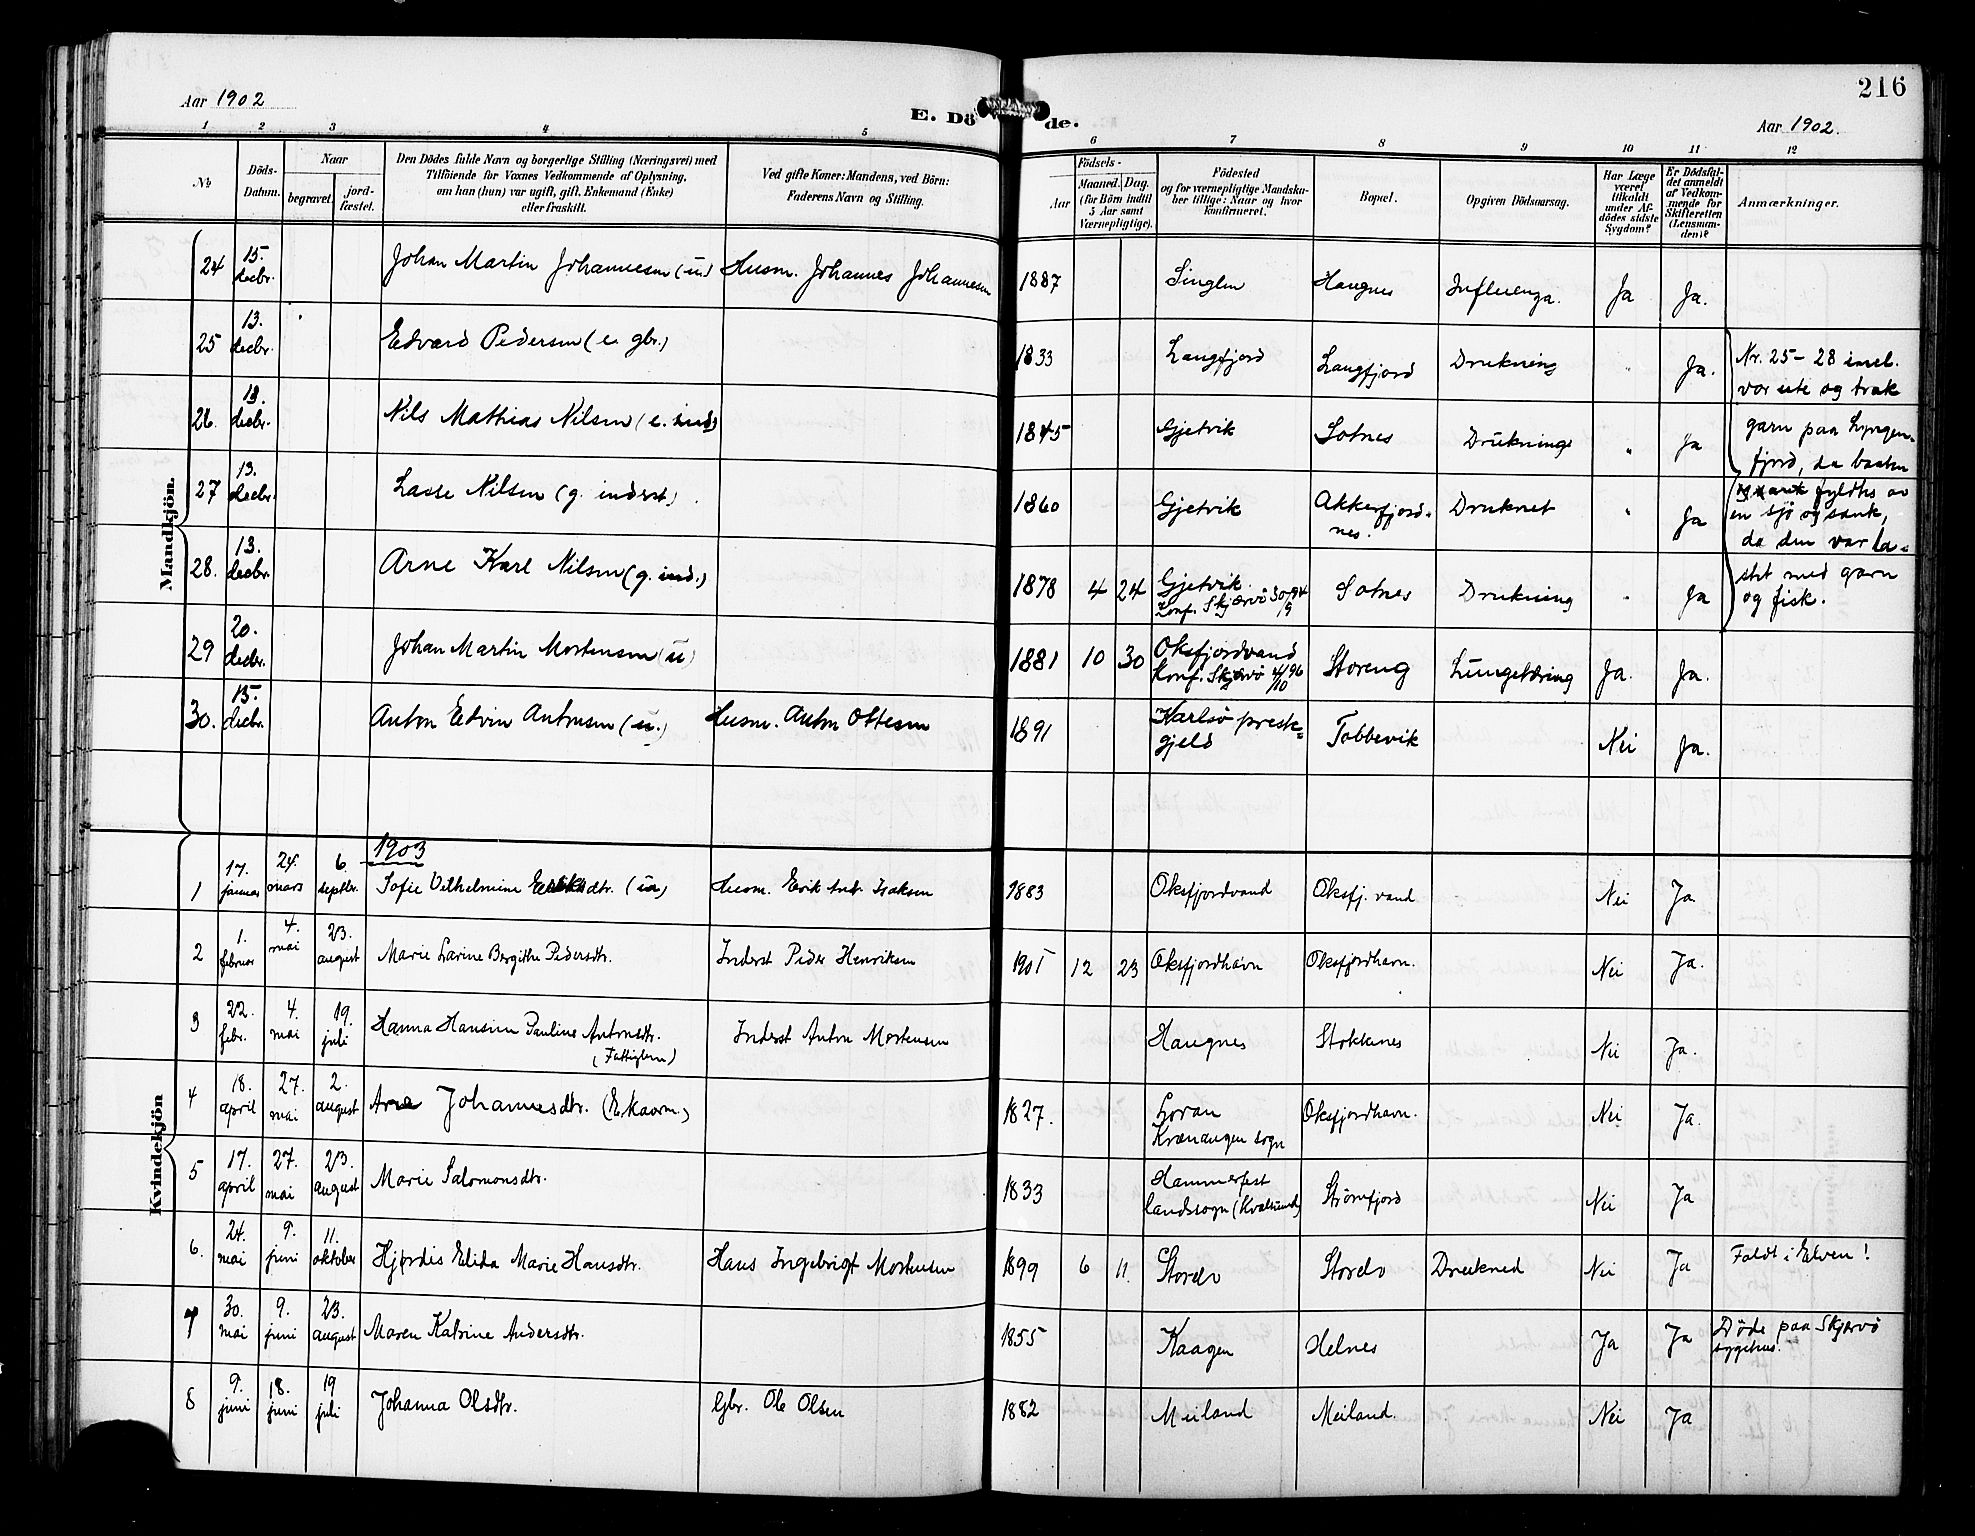 216
Aar 1902
E. Döde.
Aar 1902.
1 2 3 4 5 6 7 8 9 10 11 12
No
Döds-Datum.
Naar
begravet.
jord-fæstet.
Den Dödes fulde Navn og borgerlige Stilling (Næringsvei) med
Tilföiende for Voxnes Vedkommende af Oplysning,
om han (hun) var ugift, gift, Enkemand (Enke)
eller fraskilt.
Ved gifte Koner: Mandens, ved Börn:
Faderens Navn og Stilling.
Födsels-
Aar
Maaned. Dag.
(for Börn indtil
5 Aar samt
Værnepligtige).
Födested
og for værnepligtige Mandska-
ber tillige: Naar og hvor
konfirmeret.
Bopæl.
Opgiven Dödsaarsag.
Har Læge
været
tilkaldt
under Af-
dödes sidste
Sygdom?
Er Dödsfal-
det anmeldt
af Vedkom-
mende for
Skifteretten
(Lensman-
den)?
Anmærkninger.
Mandkjön.
24 15. decbr. Johan Martin Johannesen (u) Husm. Johannes Johannesen 1887 Singlen Haugnes Influenza. Ja Ja.
25 13. decbr. Edvard Pedersen (e gbr.) 1833 Langfjord Langfjord Drukning " Ja.
26. 13. decbr. Nils Mathias Nilsen (e. ind.) 1845 Gjetvik Sotnes Drukning " Ja
27 13. decbr. Lasse Nilsen (g. inderst) 1860 Gjetvik Akkerfjord-
nes. Druknet " Ja
28. 13. decbr. Arne Karl Nilsen (g. ind.) 1878 4 24 Gjetvik.
Konf. Skjærvö 30/9 94 Sotnes Drukning " Ja
Nr. 25-28 incl.
var ute og trak
garn paa Lyngen-
fjord, da baaten
fyldtes av
en sjö og sank,
da den var la-
stet med garn
og fisk.
29 20. decbr. Johan Martin Mortensen (u) 1881 10 30 Oksfjordvand
Konf. Skjervö 4/10 96 Storeng Lungetæring Ja. Ja.
30. 15. decbr. Anton Edvin Antonsen (u.) Husm. Anton Ottesen 1891 Karlsö prest-
gjeld Tobbevik Nei Ja.
Kvindekjön
1903
1 17. januar 24. mars 6 septbr. Sofie Vilhelmine Eriksdtr. (u) Husm. Erik Ant. Isaksen 1883 Oksfjordvand Oksfj. vand Nei Ja
2 1. februar 4. mai 23. august Marie Larine Bergithe Pedersdtr. Inderst Peder Henriksen 1901 12 23 Oksfjordhavn Oksfjordhavn. Nei Ja.
3 22. febr. 4. mai 19. juli Hanna Hansine Pauline Antonsdtr.
(Fattiglem) Inderst Anton Mortensen Haugnes Stokknes Nei Ja.
4 18. april 27. mai 2. august Johannesdtr. 1827. Loran
Kvænangen sogn Oksfjordhavn. Nei Ja.
5 17. april 27. mai 23. august Marie Salomonsdtr. 1833 Hammerfest
landssogn (Kvalsund) Strömfjord Nei Ja
6. 24. mai 9. juni 11. oktober Hjørdis Elida Marie Hansdtr. Hans Ingebrigt Mortensen 1899 6 11. Nei Drukned Ja Faldt i Elven!
7 30. mai 9. juni 23. august Maren Katrine Andersdtr. 1855 Kaagen Helnes Ja Ja Døde paa Skjervö
sygehus.
8 9. juni 18. juni 19 juli Johanna Olsdtr. Gbr. Ole Olsen 1882 Meiland Meiland. Nei Ja